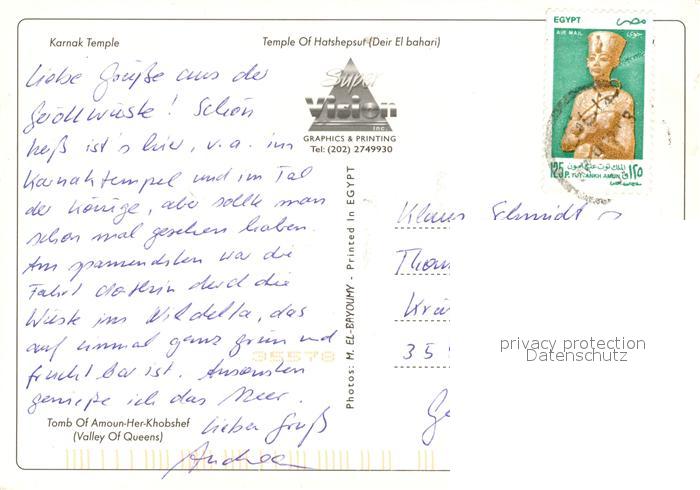 Karnak Temple
Temple Of Hatshepsut (Deir El bahari)
EGYPT مصر
AIR MAIL جوى
125 P. TUT ANKH AMUN ١٢٥
الملك توت عنخ آمون
Super
Vision
Inc.
GRAPHICS & PRINTING
Tel: (202) 2749930
Liebe Grüße aus der
Geröllwüste! Schön
heiß ist's hier, v.a. im
Karnaktempel und im Tal
der Könige, aber sollte man
schon mal gesehen haben.
Am spannendsten war die
Fahrt dorthin durch die
Wüste ins Nildelta, das
auf einmal ganz grün und
fruchtbar ist. Ansonsten
genieße ich das Meer.
Lieben Gruß
Andrea
Photos: M. EL-BAYOUMY - Printed In EGYPT
Klaus Schmidt
35
35578
privacy protection
Datenschutz
Tomb Of Amoun-Her-Khobshef
(Valley Of Queens)